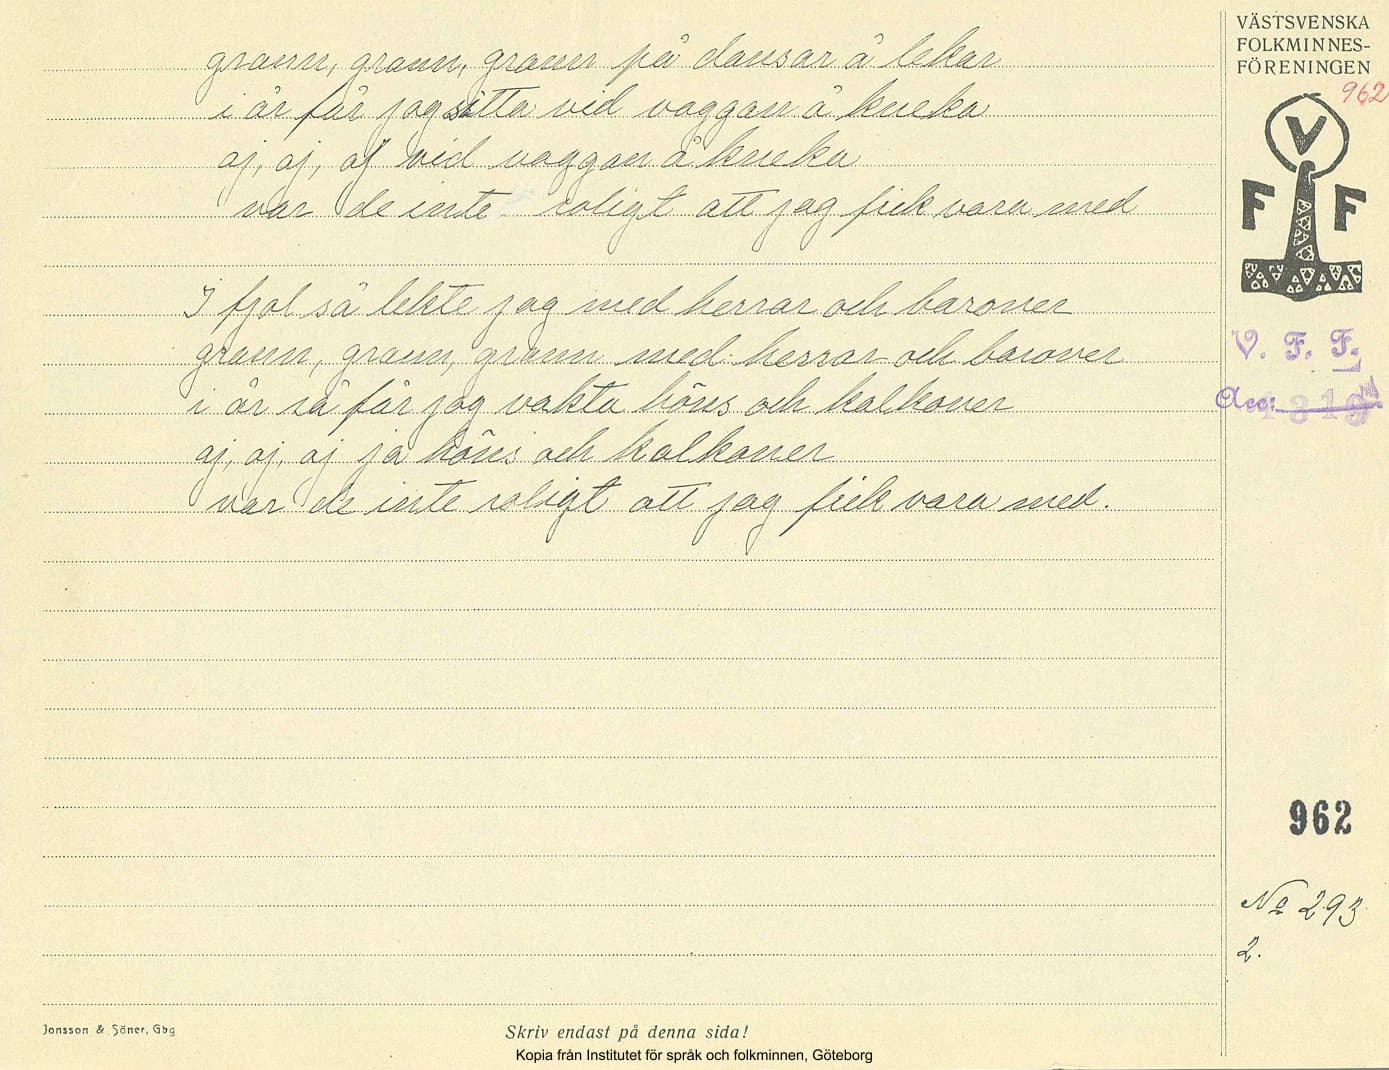 grann, grann, grann på dansar å lekar
i år får jag sitta vid vaggan å kneka
aj, aj, aj vid vaggan å kneka
var de inte roligt att jag fick vara med
I fjol så lekte jag med herrar och baroner
grann, grann, grann med herrar och baroner
i år så får jag vakta höns och kalkoner
aj, aj, aj ja höns och kalkoner
var de inte roligt att jag fick vara med.
VÄSTSVENSKA
FOLKMINNES-
FÖRENINGEN
962
V
F F
V. F. F.
Acc:
962
No 293
2.
Jonsson & Söner, Gbg
Skriv endast på denna sida!
Kopia från Institutet för språk och folkminnen, Göteborg